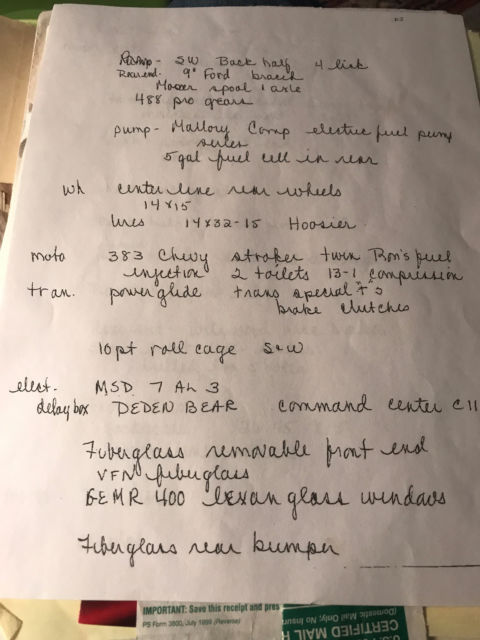 Rearsusp - SW Back half 4 link
Rearend. 9" Ford braced
Moser spool & axle
488 pro gears
pump - Mallory Comp electric fuel pump
series
5 gal fuel cell in rear
wh center line rear wheels
14x15
tires 14x32-15 Hoosier
moto 383 Chevy stroker twin Ron's fuel
injection 2 toilets 13-1 compression
tran. powerglide trans special "T"s
brake clutches
10 pt roll cage S&W
elect. MSD 7 AL 3
delay box DEDEN BEAR command center C11
Fiberglass removable front end
VFN fiberglass
GEMR 400 lexan glass windows
Fiberglass rear bumper
IMPORTANT: Save this receipt and pres
PS Form 3800, July 1999 (Reverse)
(Domestic Mail Only; No Insur
CERTIFIED MAIL R